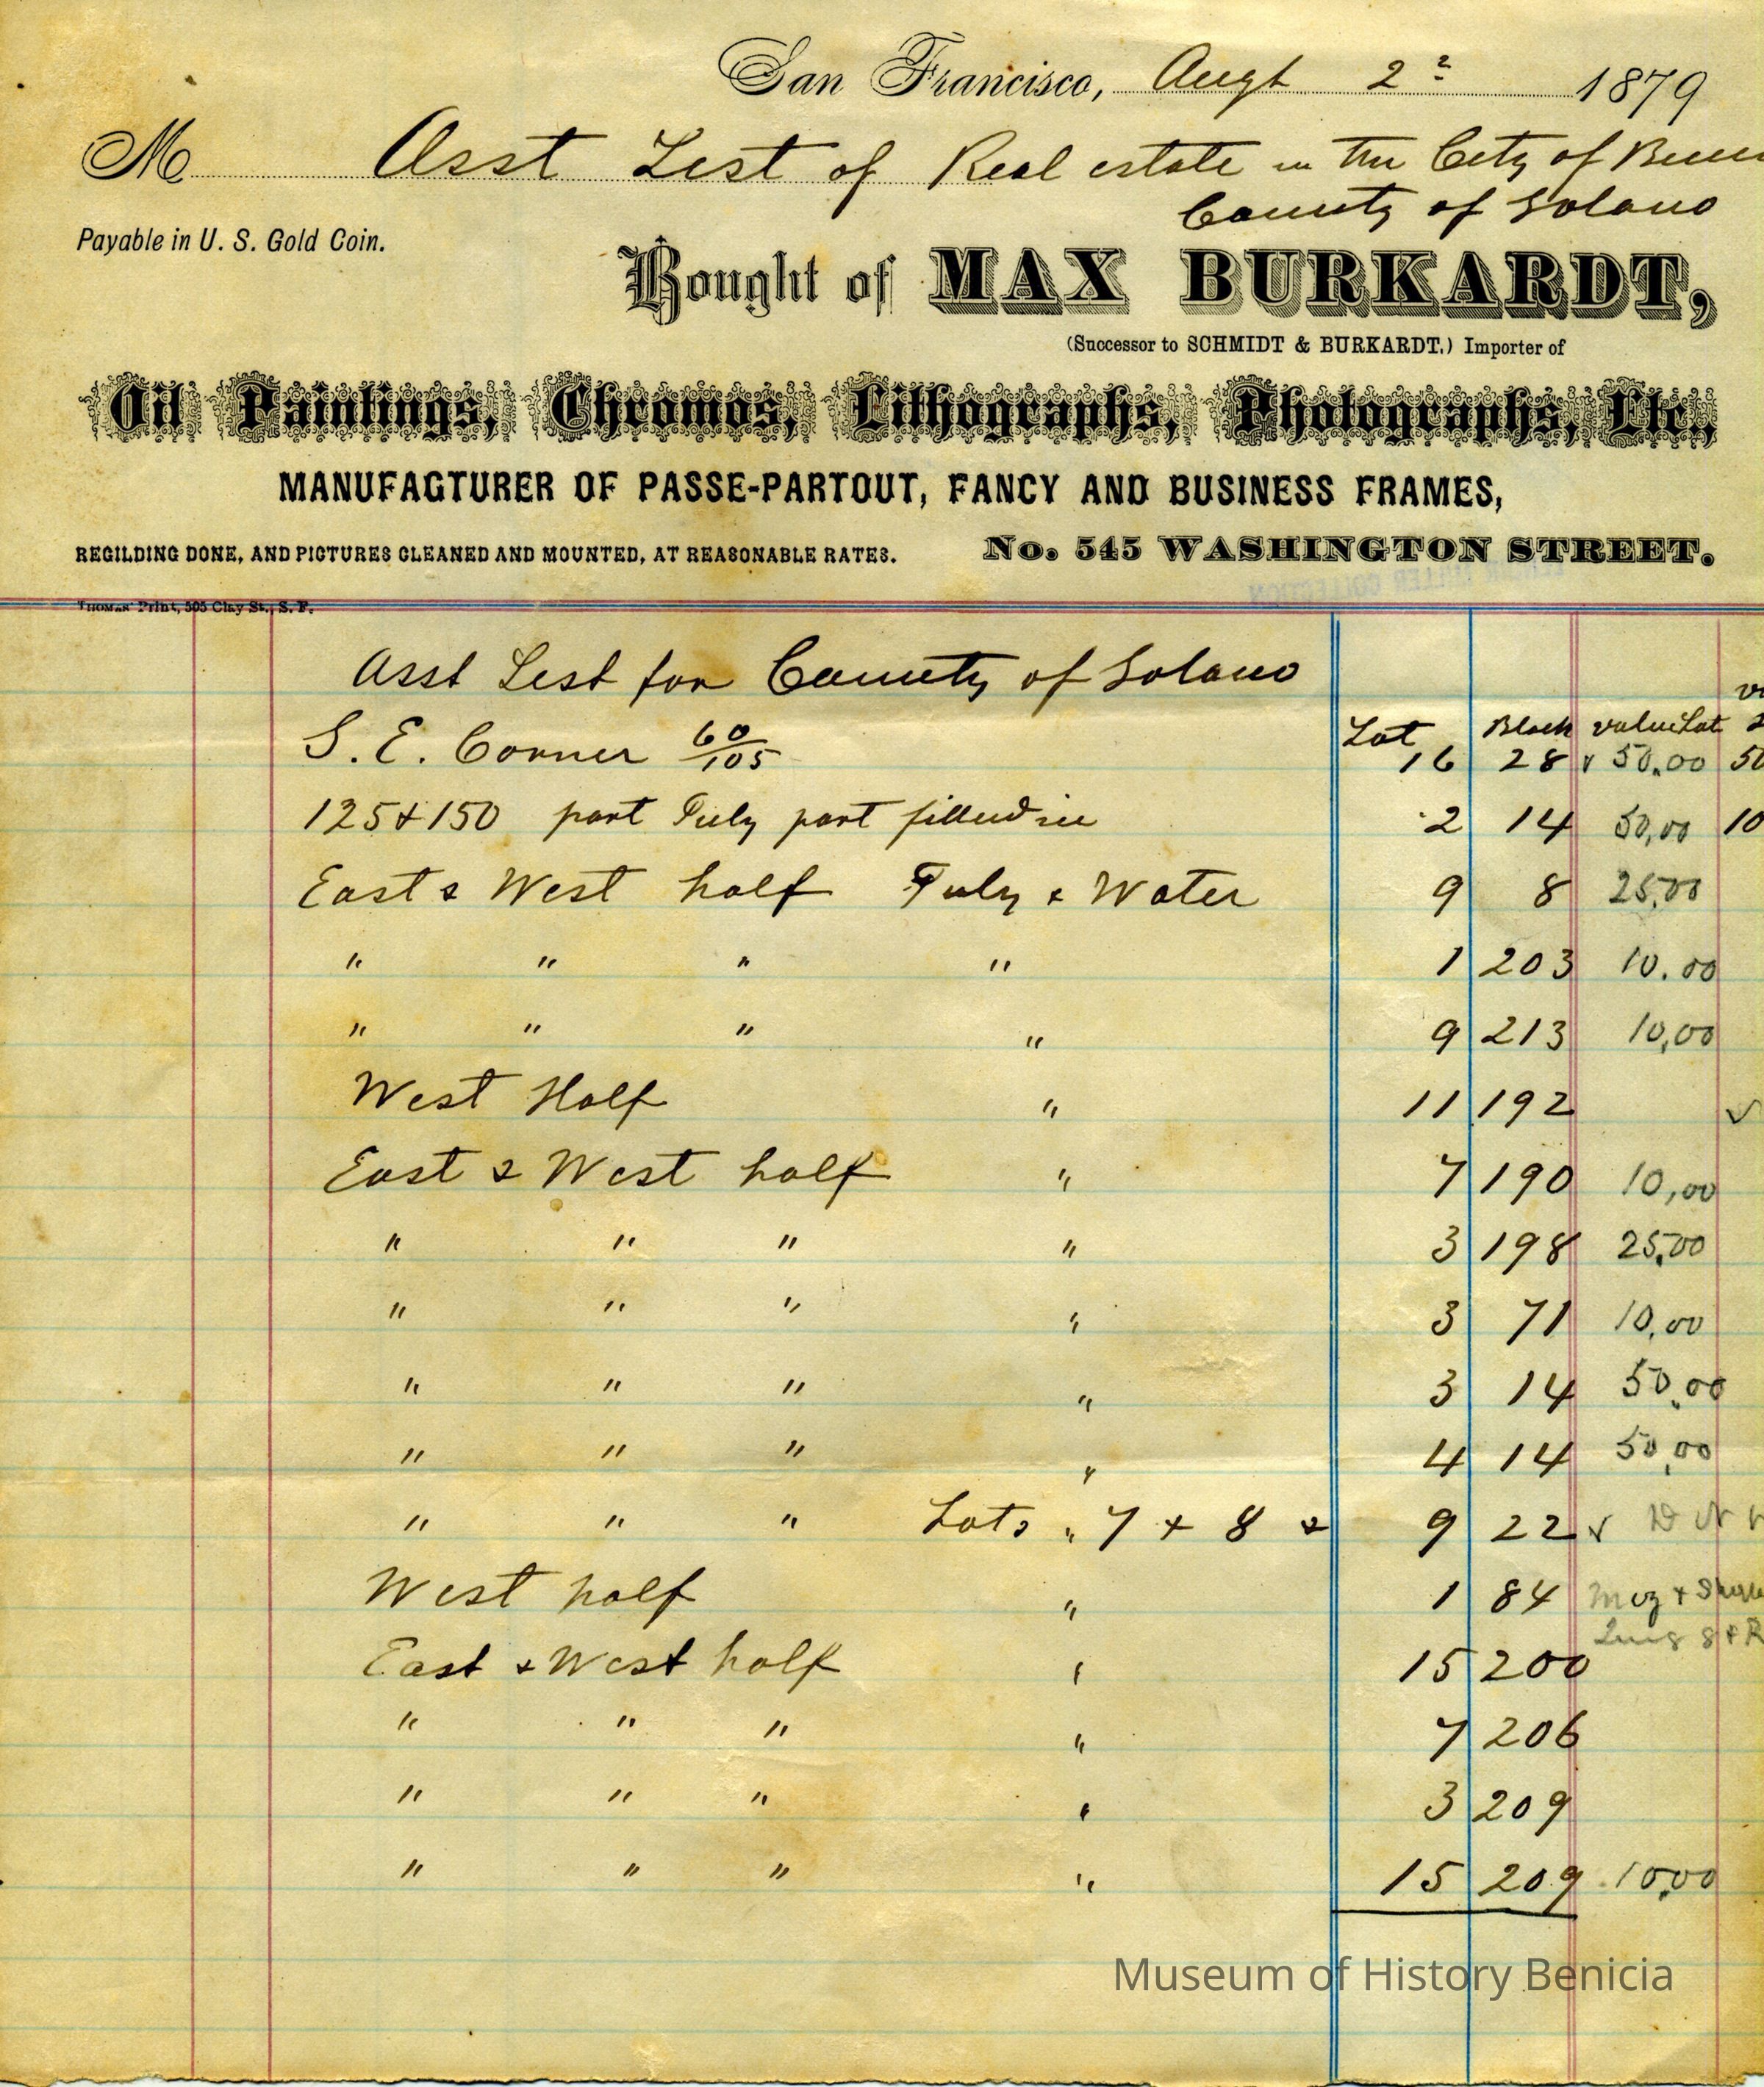 San Francisco, Augt 2d 1879
M Asst List of Real estate in the City of
County of Solano
Payable in U. S. Gold Coin.
Bought of MAX BURKARDT,
(Successor to SCHMIDT & BURKARDT.) Importer of
Oil Paintings, Chromos, Lithographs, Photographs, Etc.,
MANUFACTURER OF PASSE-PARTOUT, FANCY AND BUSINESS FRAMES,
REGILDING DONE, AND PICTURES CLEANED AND MOUNTED, AT REASONABLE RATES. No. 545 WASHINGTON STREET.
THOMAS' Print, 505 Clay St., S. F.
Asst List for County of Solano
Lot Block value Lot
S. E. Corner 60/105 16 28 v 50.00 50
125 + 150 part Tuly part filled in 2 14 50,00 10
East & West half Tuly & Water 9 8 25.00
" " " " 1 203 10.00
" " " " 9 213 10,00
West Half " 11 192 ✓
East & West half " 7 190 10,00
" " " " 3 198 25.00
" " " " 3 71 10.00
" " " " 3 14 50.00
" " " " 4 14 50,00
" " " Lots " 7 + 8 & 9 22 v
West half " 1 84
East + West half " 15 200
" " " " 7 206
" " " " 3 209
" " " " 15 209 10.00
Museum of History Benicia